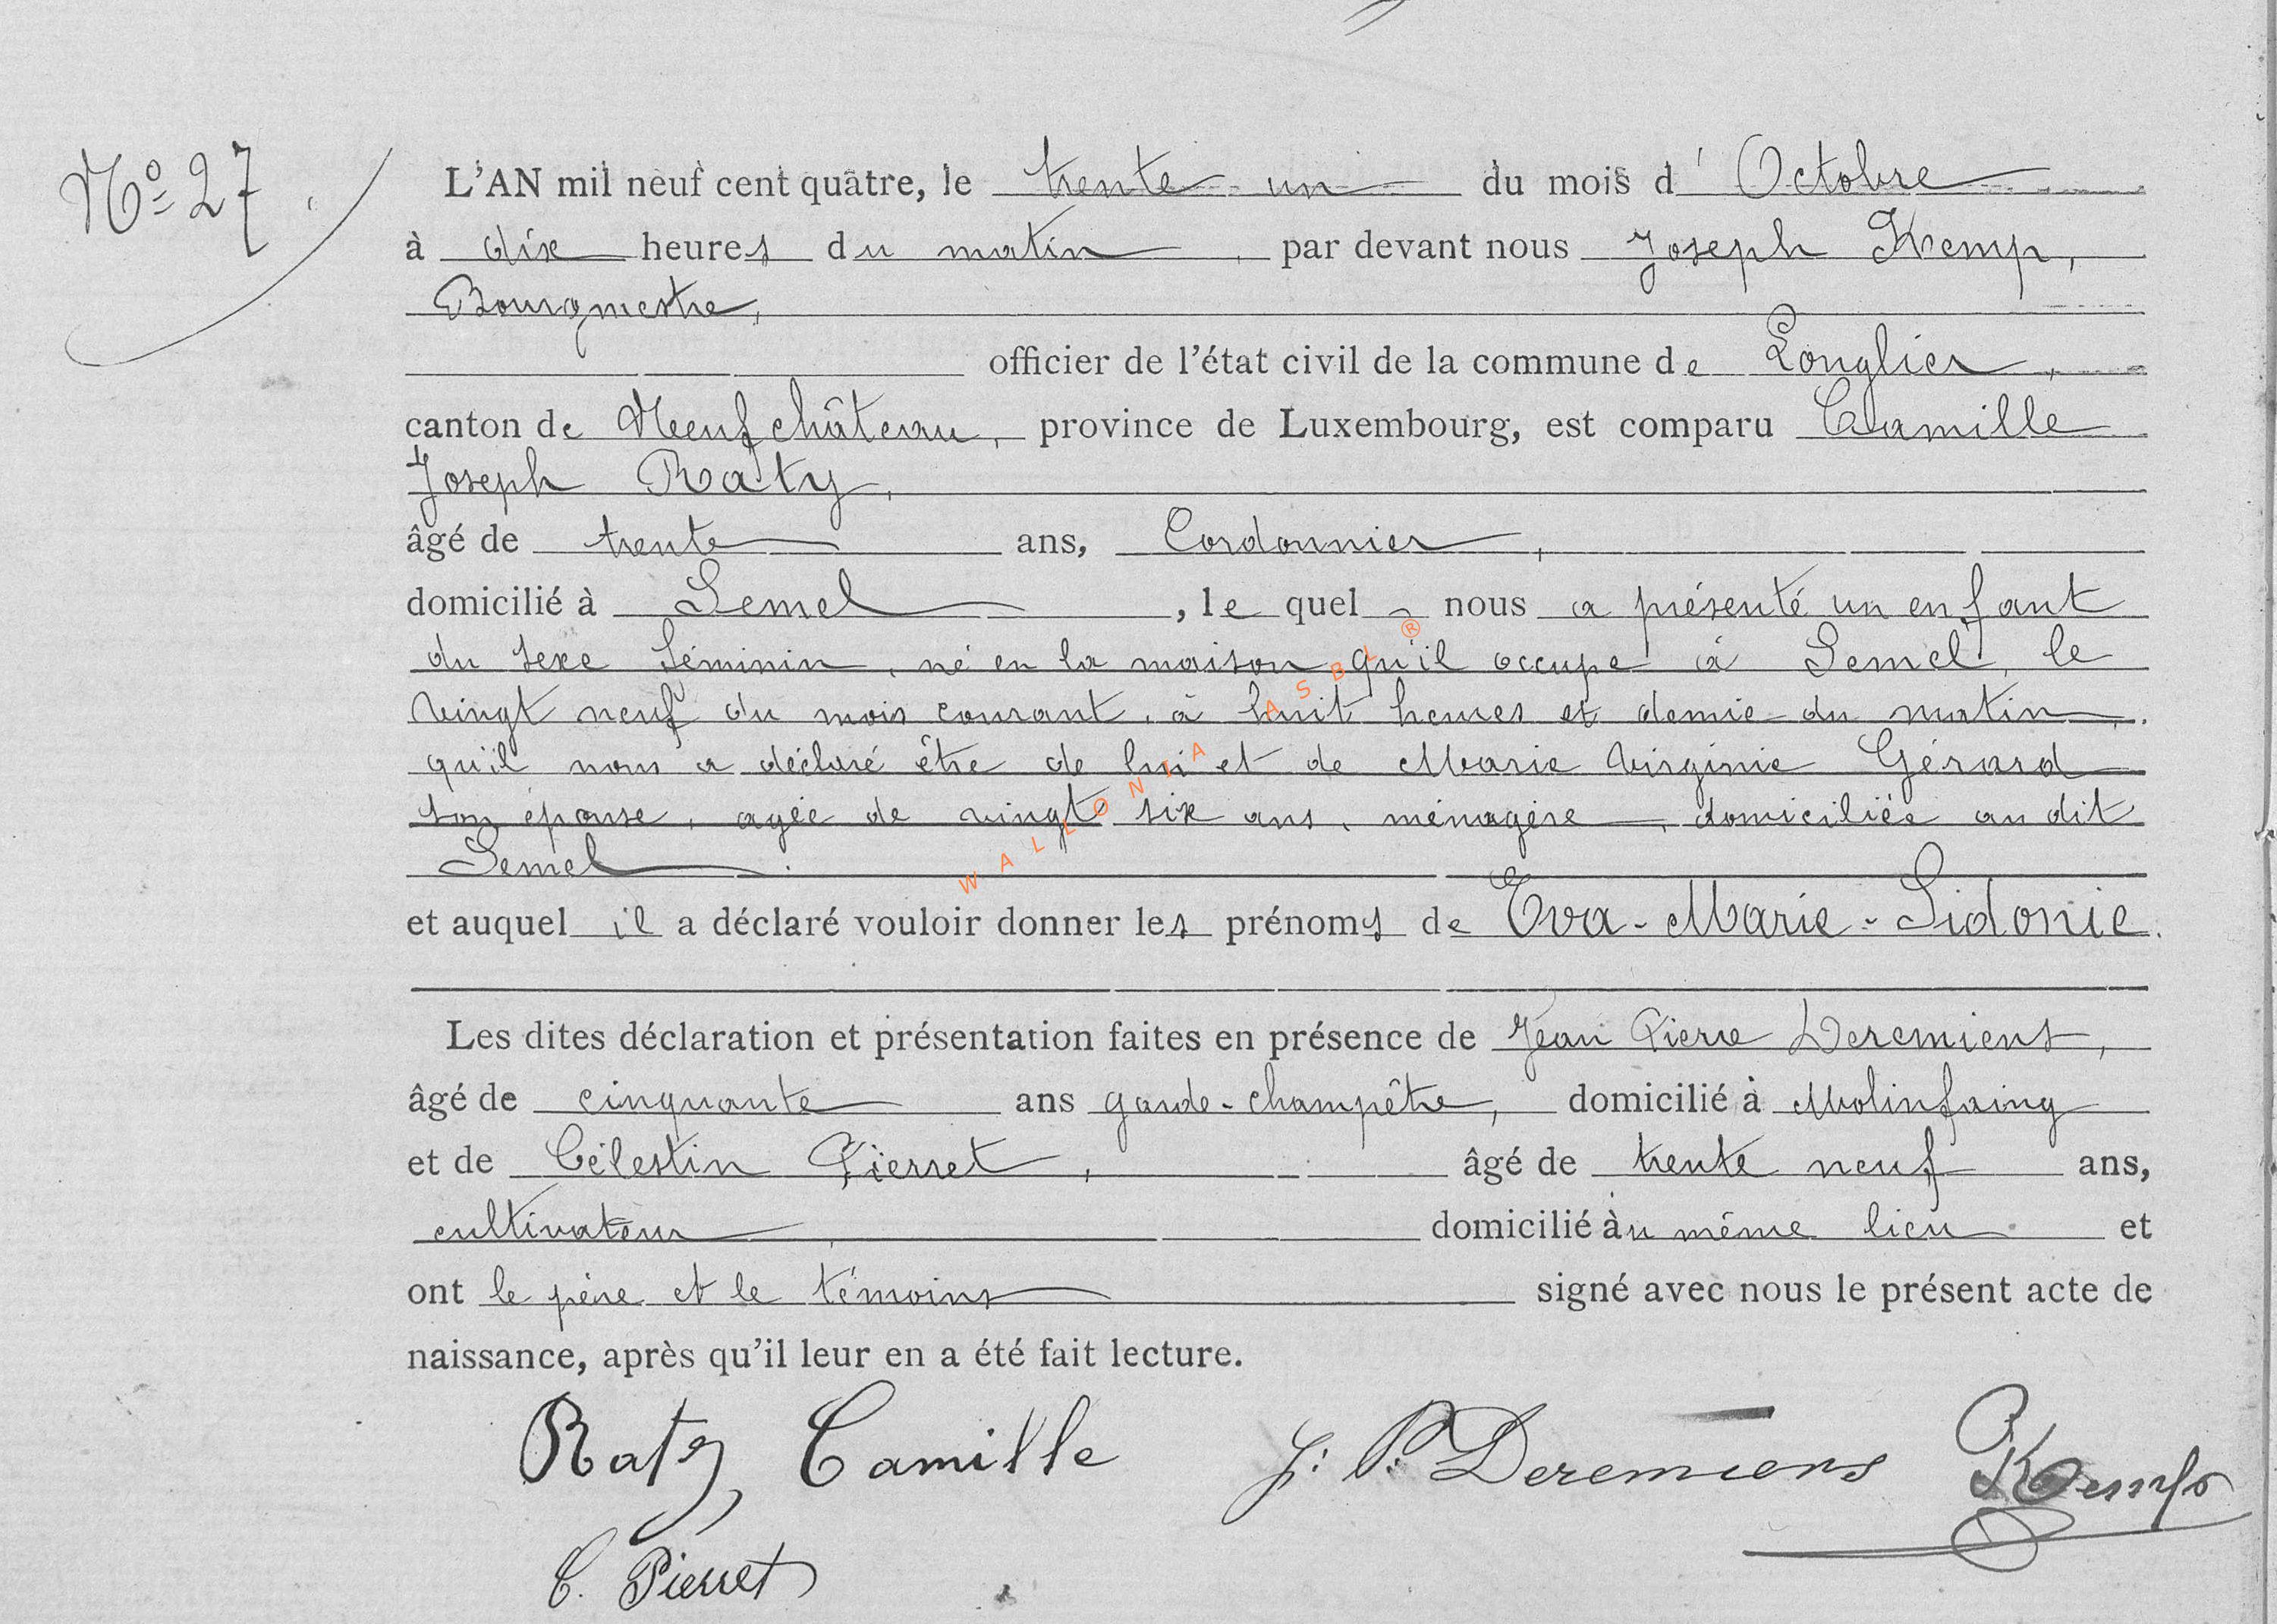 Nº 27.
L'AN mil neuf cent quatre, le trente un du mois d'Octobre
à dix heures du matin, par devant nous Joseph Kemp,
Bourgmestre,
officier de l'état civil de la commune de Longlier,
canton de Neufchâteau, province de Luxembourg, est comparu Camille
Joseph Raty,
âgé de trente ans, Cordonnier,
domicilié à Semel, le quel nous a présenté un enfant
du sexe féminin, né en la maison qu'il occupe à Semel, le
vingt neuf du mois courant, à huit heures et demie du matin,
qu'il nous a déclaré être de lui et de Marie Virginie Gérard
son épouse, agée de vingt six ans, ménagère, domiciliée au dit
Semel.
et auquel il a déclaré vouloir donner les prénoms de Eva-Marie-Sidonie.
Les dites déclaration et présentation faites en présence de Jean Pierre Deremiens,
âgé de cinquante ans garde-champêtre, domicilié à Molinfaing
et de Célestin Pierret, âgé de trente neuf ans,
cultivateur, domicilié àu même lieu et
ont le père et le témoins signé avec nous le présent acte de
naissance, après qu'il leur en a été fait lecture.
Raty, Camille J. P. Deremiens Kemp
C. Pierret
WALLONIA ASBL ®